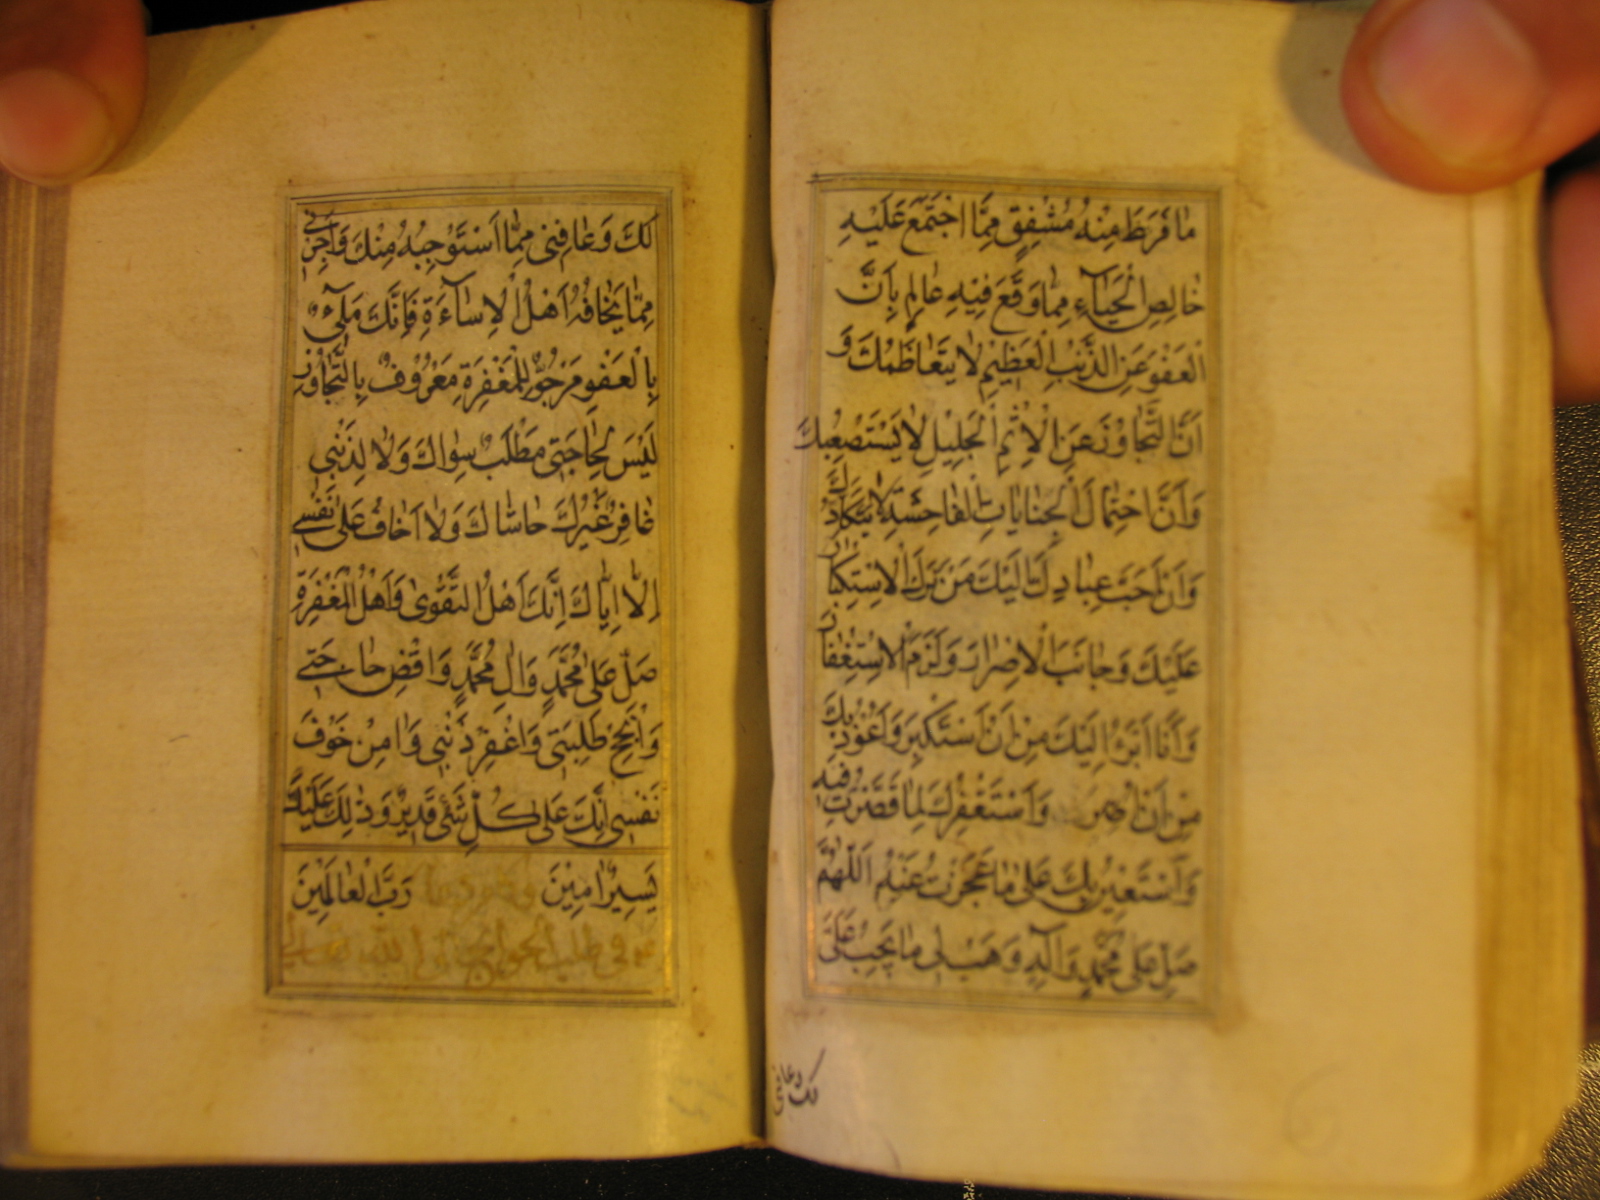 مَا فَرَطَ مِنْهُ مُشْفِقٍ مِمَّا اجْتَمَعَ عَلَيْهِ
خَالِصِ الْحَيَاءِ مِمَّا وَقَعَ فِيهِ عَالِمٍ بِأَنَّ
الْعَفْوَ عَنِ الذَّنْبِ الْعَظِيمِ لَا يَتَعَاظَمُكَ وَ
اَنَّ التَّجَاوُزَ عَنِ الْاِثْمِ الْجَلِيلِ لَا يَسْتَصْعِبُكَ
وَاَنَّ احْتِمَالَ الْجِنَايَاتِ الْفَاحِشَةِ لَا يَتَكَأَّدُكَ
وَاَنَّ اَحَبَّ عِبَادِكَ اِلَيْكَ مَنْ تَرَكَ الْاِسْتِكْبَارَ
عَلَيْكَ وَجَانَبَ الْاِصْرَارَ وَلَزِمَ الْاِسْتِغْفَارَ
وَاَنَا اَبْرَءُ اِلَيْكَ مِنْ اَنْ اَسْتَكْبِرَ وَاَعُوذُ بِكَ
مِنْ اَنْ اُصِرَّ وَاَسْتَغْفِرُكَ لِمَا قَصَّرْتُ فِيهِ
وَاَسْتَعِينُ بِكَ عَلَى مَا عَجَزْتُ عَنْهُ اَللّٰهُمَّ
صَلِّ عَلَى مُحَمَّدٍ وَآلِهِ وَهَبْ لِي مَا يَجِبُ عَلَيَّ
لك وعافنى
لَكَ وَعَافِنِي مِمَّا اَسْتَوْجِبُهُ مِنْكَ وَاَجِرْنِي
مِمَّا يَخَافُهُ اَهْلُ الْاِسَاءَةِ فَاِنَّكَ مَلِيءٌ
بِالْعَفْوِ مَرْجُوٌّ لِلْمَغْفِرَةِ مَعْرُوفٌ بِالتَّجَاوُزِ
لَيْسَ لِحَاجَتِي مَطْلَبٌ سِوَاكَ وَلَا لِذَنْبِي
غَافِرٌ غَيْرُكَ حَاشَاكَ وَلَا اَخَافُ عَلَى نَفْسِي
اِلَّا اِيَّاكَ اِنَّكَ اَهْلُ التَّقْوَى وَاَهْلُ الْمَغْفِرَةِ
صَلِّ عَلَى مُحَمَّدٍ وَآلِ مُحَمَّدٍ وَاقْضِ حَاجَتِي
وَاَنْجِحْ طَلِبَتِي وَاغْفِرْ ذَنْبِي وَآمِنْ خَوْفَ
نَفْسِي اِنَّكَ عَلَى كُلِّ شَيْءٍ قَدِيرٌ وَذٰلِكَ عَلَيْكَ
يَسِيرٌ اٰمِينَ رَبَّ الْعَالَمِينَ
فى طلب الحوائج الى الله تعالى